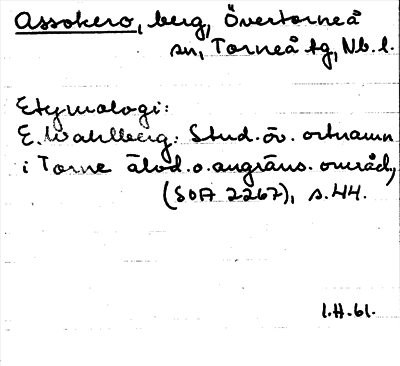 Assokero, berg, Övertorneå
sn, Torneå tg, Nb. l.
Etymologi:
E. Wahlberg: Stud. öv. ortnamn
i Torne älvd. o. angräns. områd.,
(SOA 2267), s. 44.
I.H. 61.